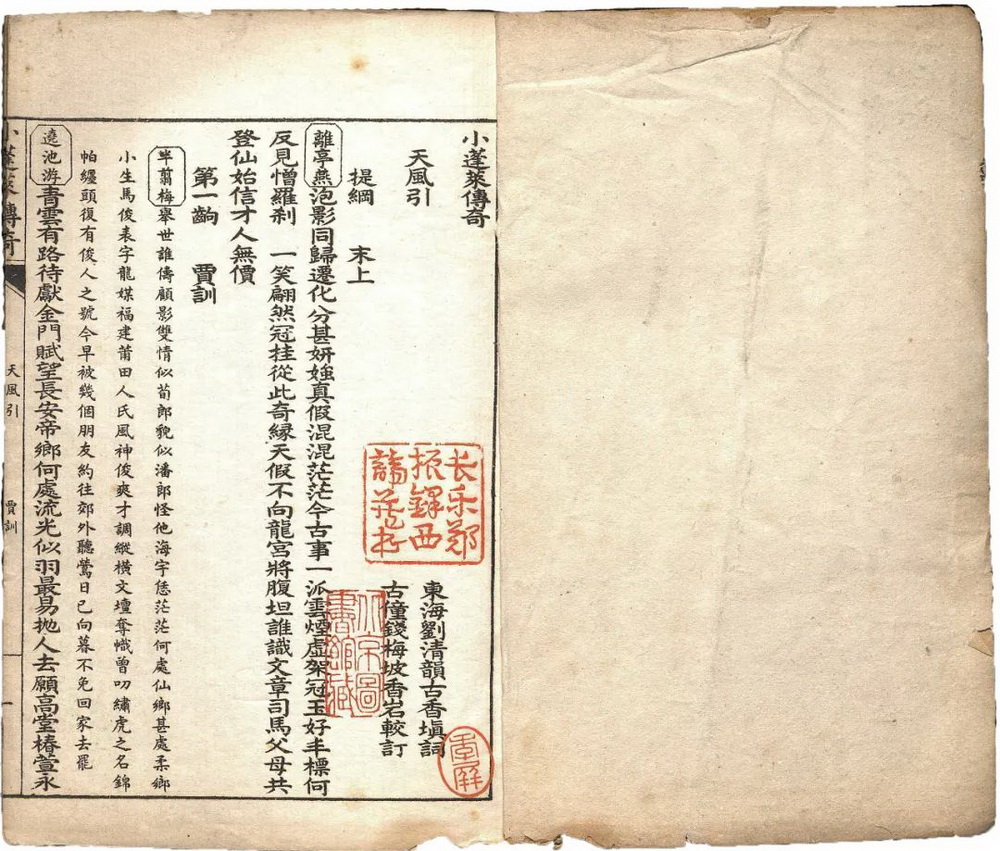 小蓬萊傳奇
天風引
東海劉清韻古香塡詞
古僮錢梅坡香岩較訂
提綱 末上
離亭燕泡影同歸遷化分甚妍媸真假混混茫茫今古事一派雲煙虛架冠玉好丰標何
反見憎羅刹 一笑翩然冠挂從此奇緣天假不向龍宮將腹坦誰識文章司馬父母共
登仙始信才人無價
第一齣 賈訓
半翦梅舉世誰儔顧影雙情似荀郎貌似潘郎怪他海宇恁茫茫何處仙鄉甚處柔鄉
小生馬俊表字龍媒福建莆田人氏風神俊爽才調縱橫文壇奪幟曾叨繡虎之名錦
帕纏頭復有俊人之號今早被幾個朋友約往郊外聽鶯日已向暮不免回家去罷
遶池游青雲有路待獻金門賦望長安帝鄉何處流光似羽最易拋人去願高堂椿萱永
小蓬萊傳奇
天風引
賈訓
一
长乐郑
振铎西
諦藏书
北京圖
書館藏